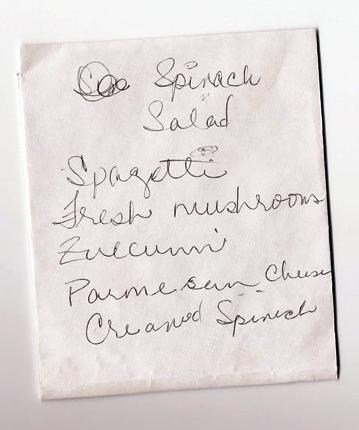 Spinach
Salad
Spagetti
Fresh mushrooms
Zuccinni
Parmesan Cheese
Creamed Spinach